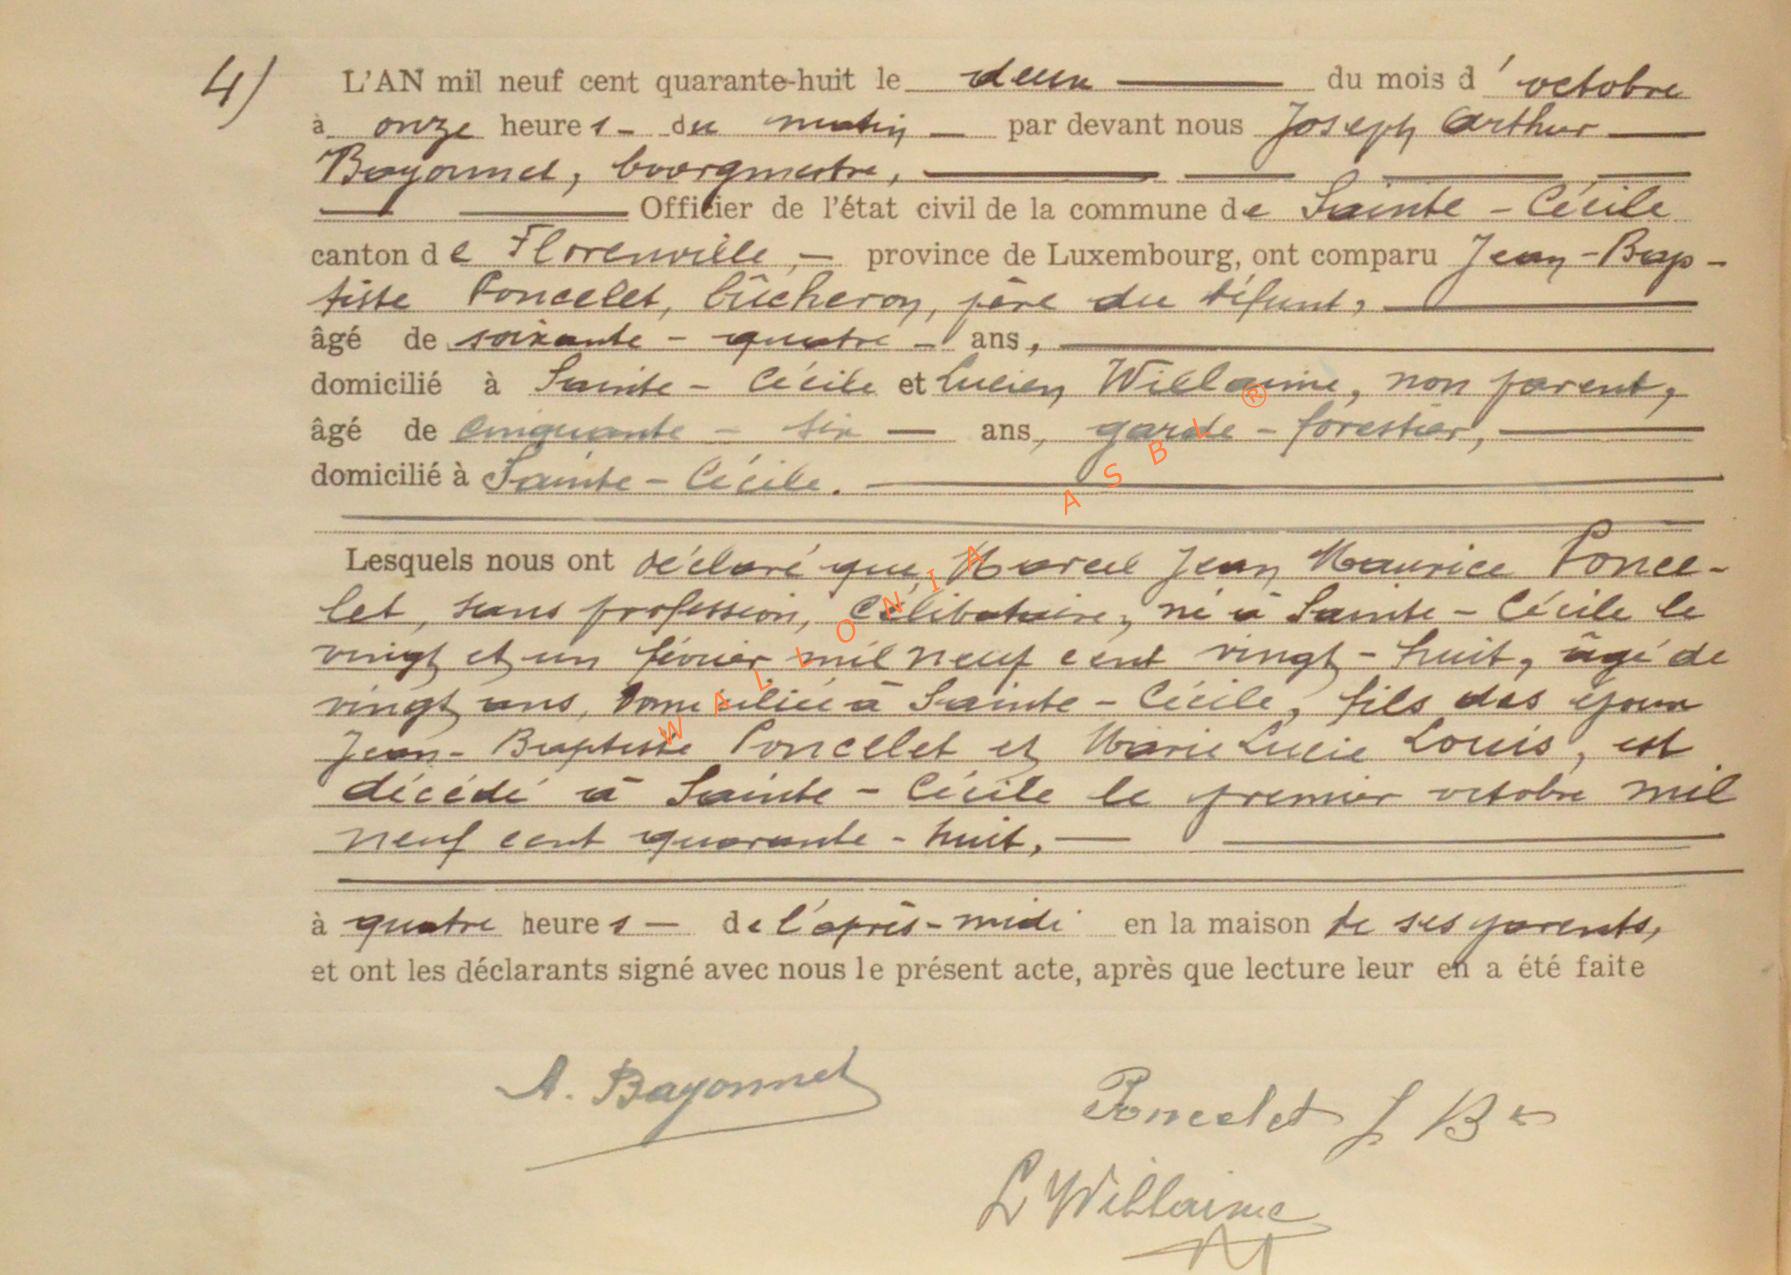 4) L'AN mil neuf cent quarante-huit le deux du mois d'octobre
à onze heures - du matin - par devant nous Joseph Arthur
Bayonnet, bourgmestre,
Officier de l'état civil de la commune de Sainte - Cécile
canton de Florenville, - province de Luxembourg, ont comparu Jean - Bap-
tiste Poncelet, bûcheron, père du défunt,
âgé de soixante - quatre - ans,
domicilié à Sainte - Cécile et Lucien Willaime, non parent,
âgé de cinquante - six - ans, garde - forestier,
domicilié à Sainte - Cécile.
Lesquels nous ont déclaré que Marcel Jean Maurice Ponce-
let, sans profession, célibataire, né à Sainte - Cécile le
vingt et un février mil neuf cent vingt - huit, âgé de
vingt ans, domicilié à Sainte - Cécile, fils des époux
Jean - Baptiste Poncelet et Marie Lucie Louis, est
décédé à Sainte - Cécile le premier octobre mil
neuf cent quarante - huit, -
à quatre heures - de l'après-midi en la maison de ses parents,
et ont les déclarants signé avec nous le présent acte, après que lecture leur en a été faite
A. Bayonnet
Poncelet J Bte
L Willaime
WALLONIA ASBL ®